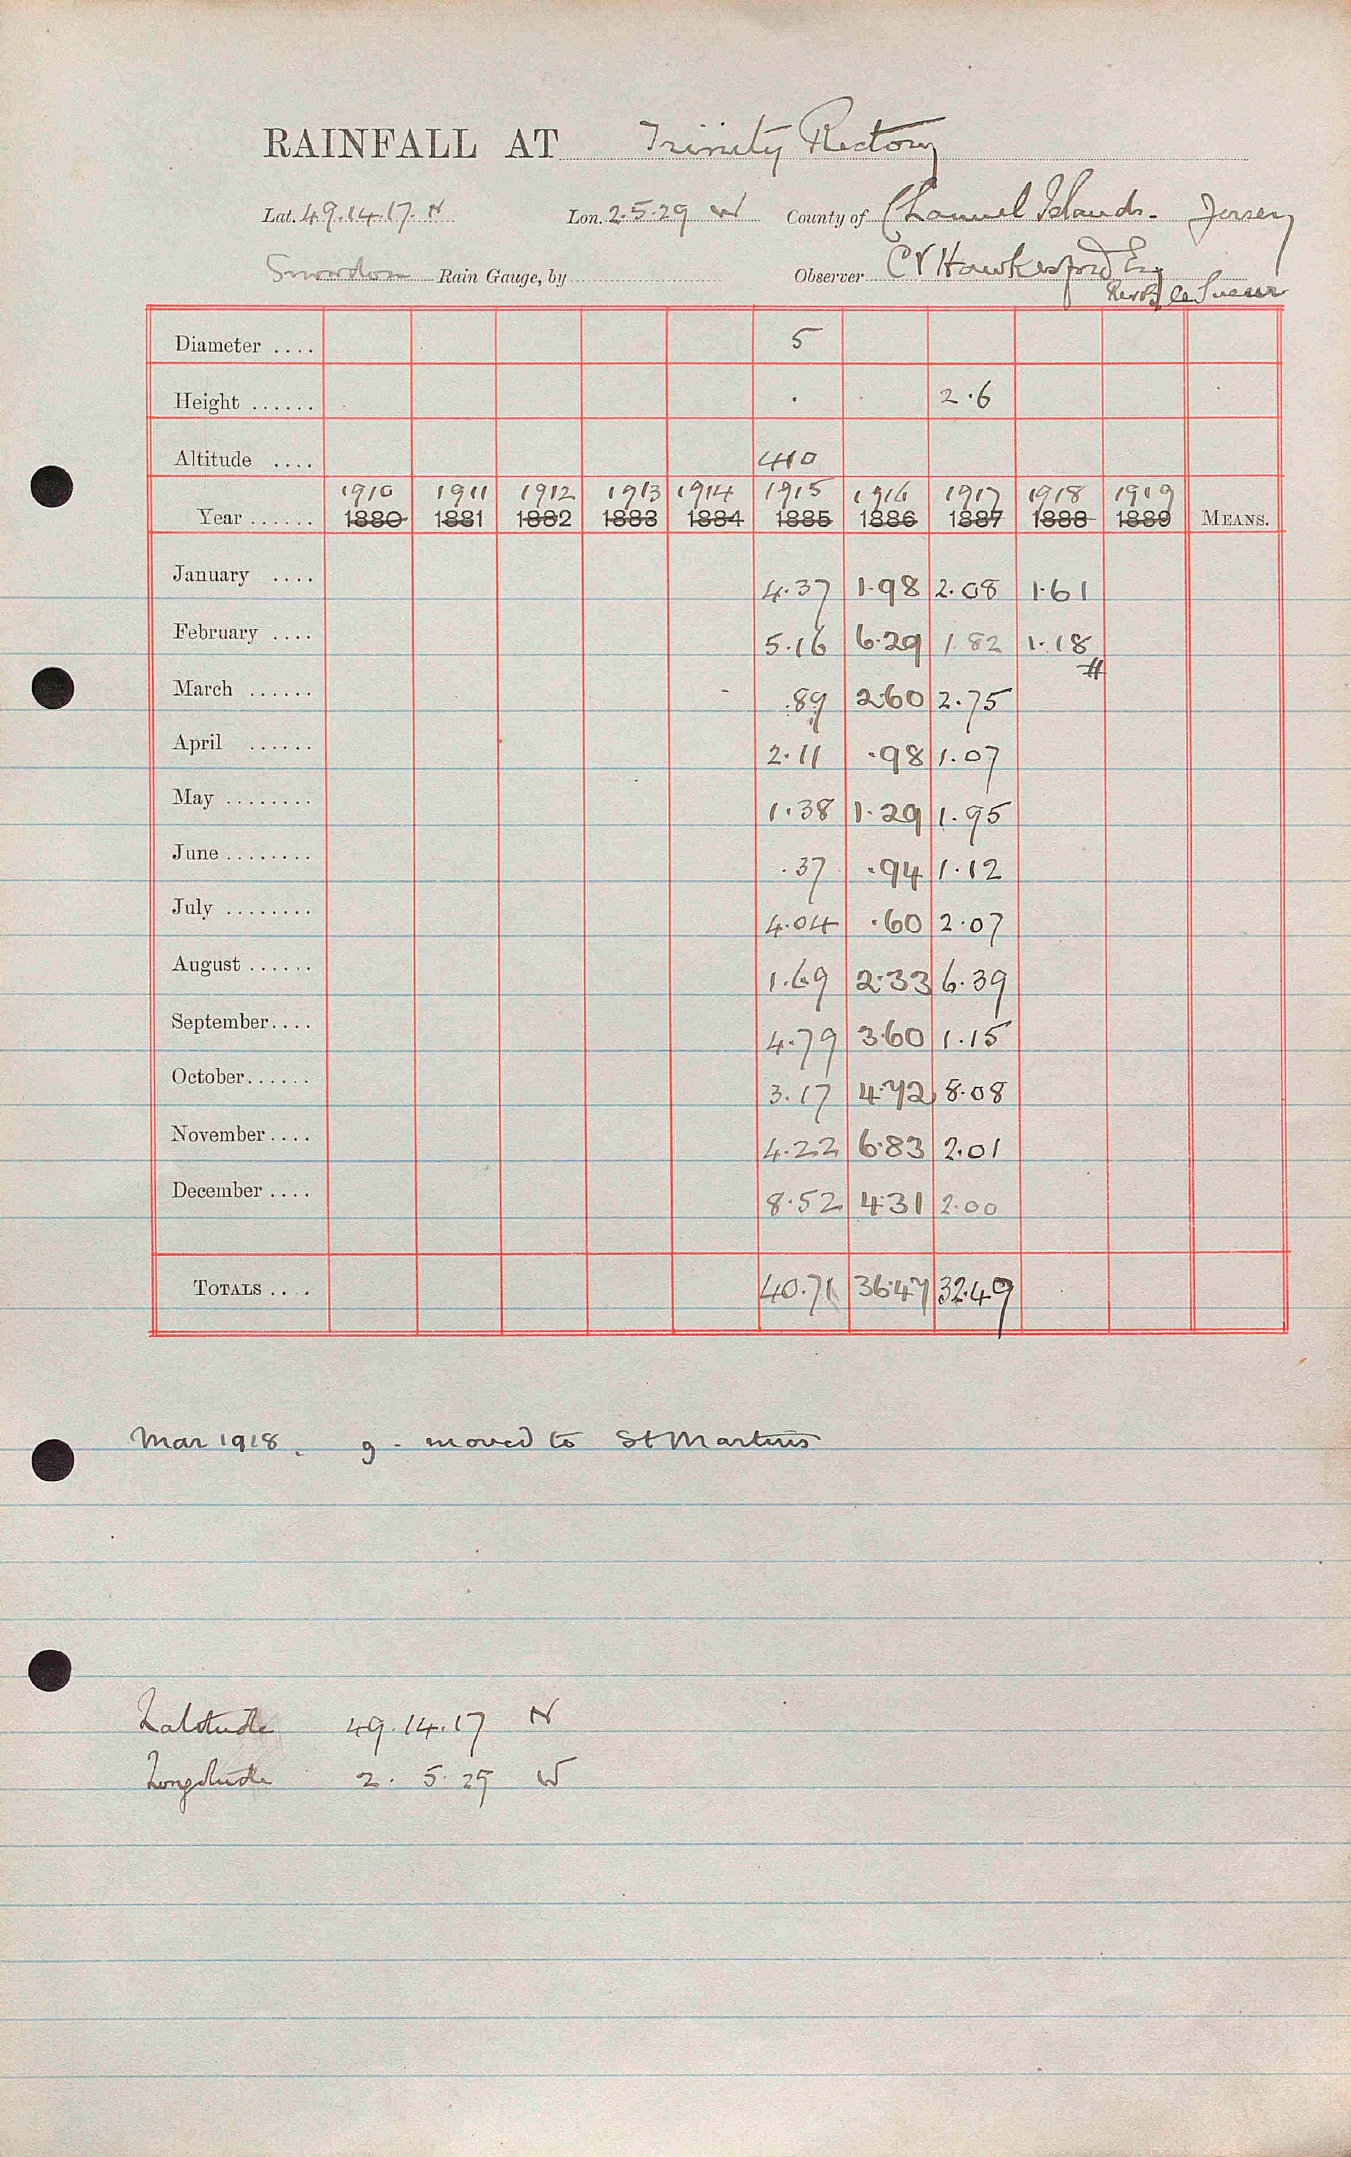 RAINFALL AT Trinity Rectory
Lat. 49.14.17. N Lon. 2.5.29 W County of Channel Islands. Jersey
Snowdon Rain Gauge, by Observer CV Hawkesford Esq
le Sueur
Diameter .... 5
Height ...... 2.6
Altitude .... 410
1910 1911 1912 1913 1914 1915 1916 1917 1918 1919
Year ...... 1880 1881 1882 1883 1884 1885 1886 1887 1888 1889 MEANS.
January .... 4.37 1.98 2.08 1.61
February .... 5.16 6.29 1.82 1.18
March ...... .89 2.60 2.75
April ...... 2.11 .98 1.07
May ........ 1.38 1.29 1.95
June ........ .37 .94 1.12
July ........ 4.04 .60 2.07
August ...... 1.69 2.33 6.39
September.... 4.79 3.60 1.15
October...... 3.17 4.72 8.08
November.... 4.22 6.83 2.01
December .... 8.52 4.31 2.00
TOTALS .... 40.71 36.47 32.49
Mar 1918. g. moved to St Martins
Latitude 49.14.17 N
Longitude 2. 5. 29 W